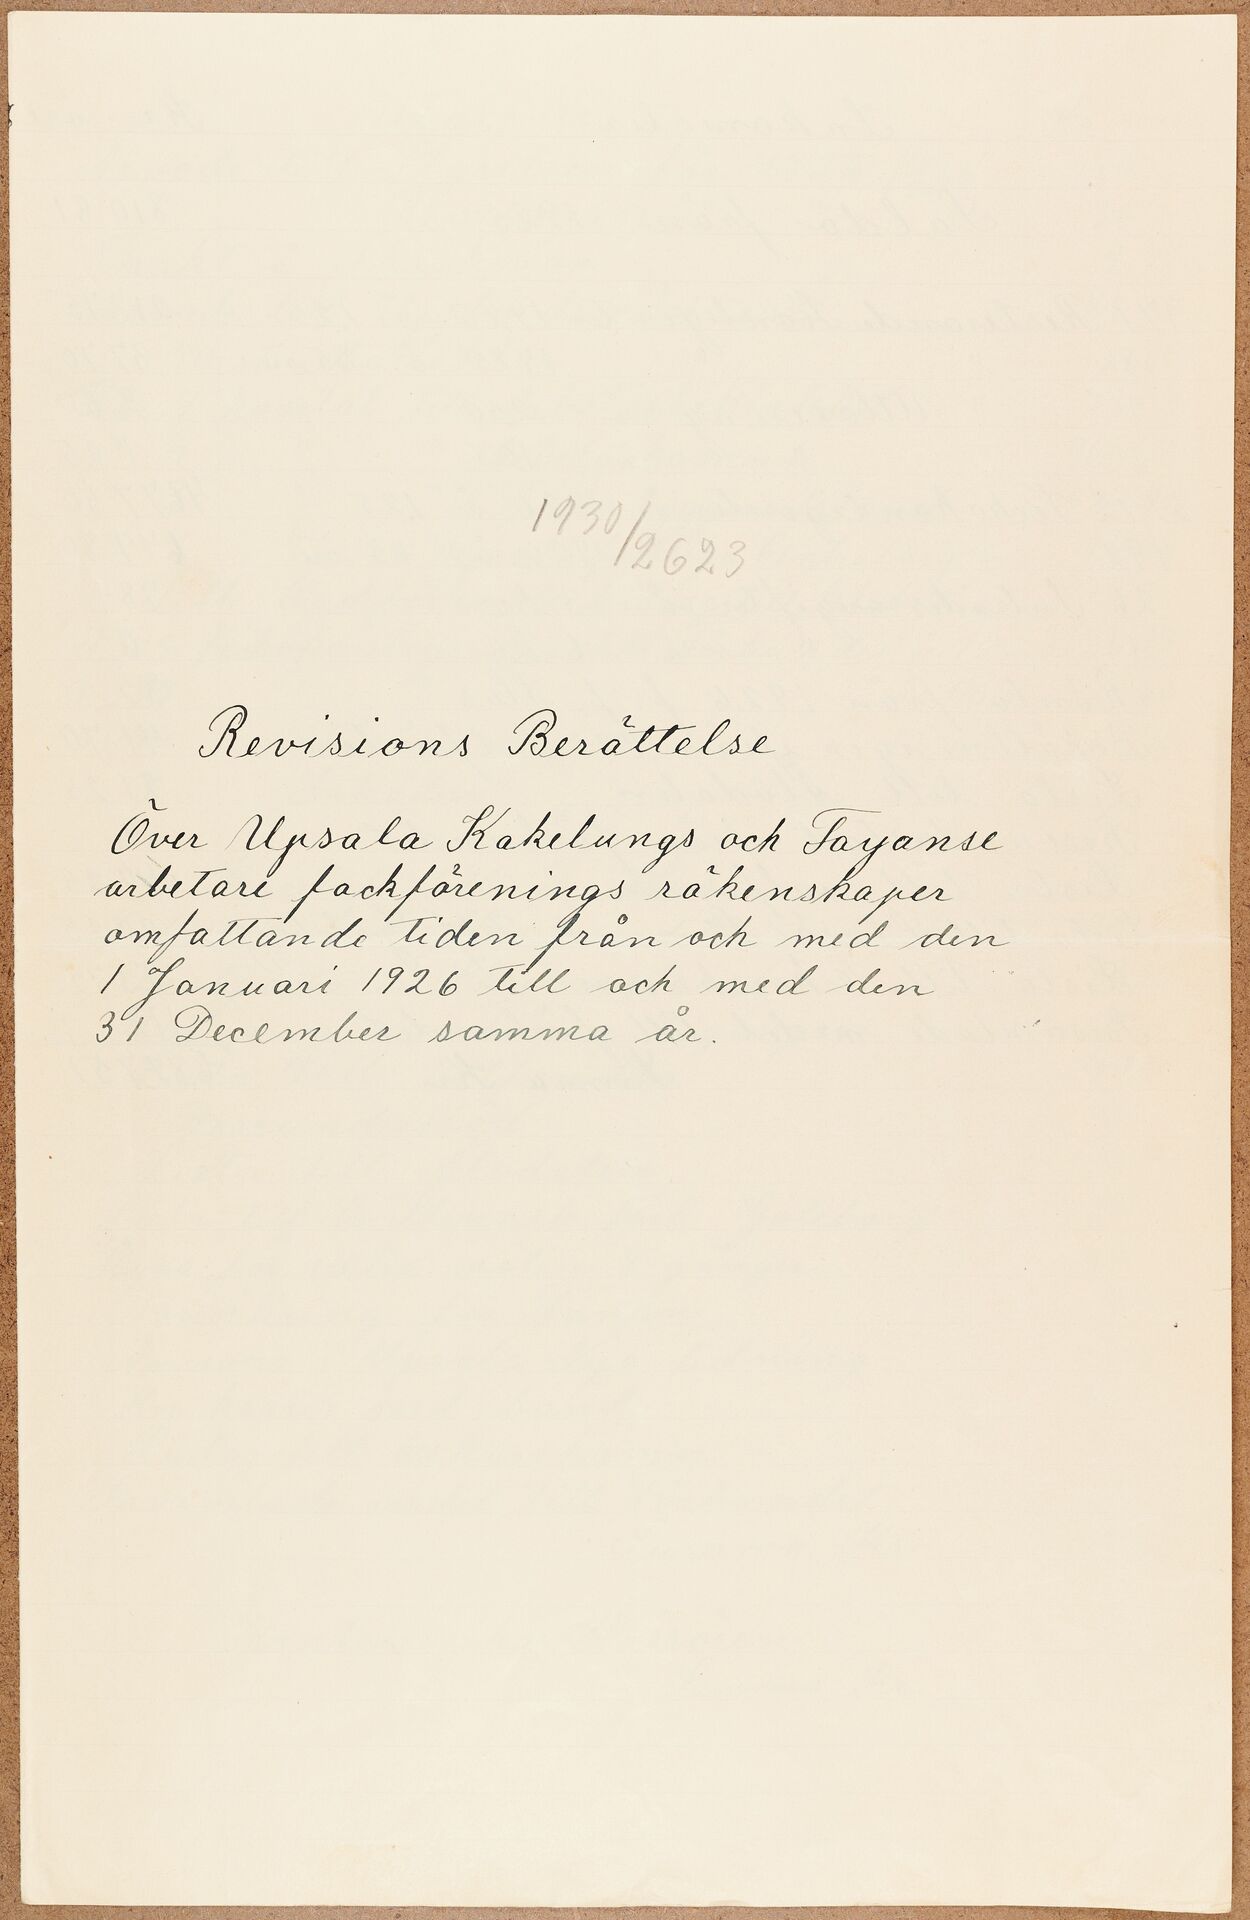 1930/2623
Revisions Berättelse
Över Upsala Kakelungs och Fayanse
arbetare fackförenings räkenskaper
omfattande tiden från och med den
1 Januari 1926 till och med den
31 December samma år.